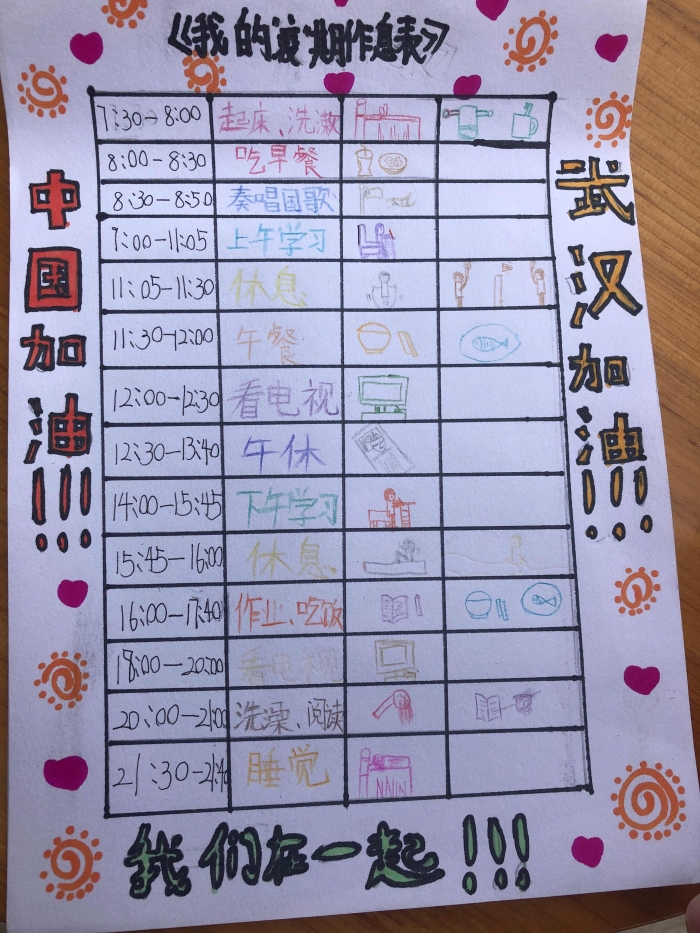 《我的疫期作息表》
中国加油!!!
武汉加油!!!
7:30-8:00 起床、洗漱
8:00-8:30 吃早餐
8:30-8:50 奏唱国歌
9:00-11:05 上午学习
11:05-11:30 休息
11:30-12:00 午餐
12:00-12:30 看电视
12:30-13:40 午休
14:00-15:45 下午学习
15:45-16:00 休息
16:00-17:40 作业、吃饭
18:00-20:00 看电视
20:00-21:00 洗澡、阅读
21:30-21:40 睡觉
我们在一起!!!